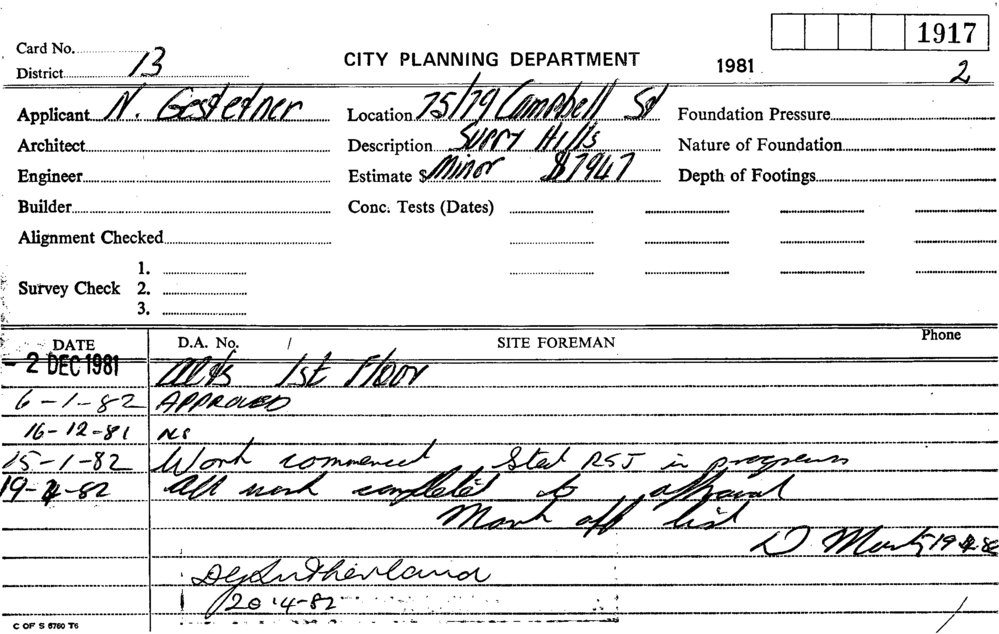 1917
Card No.
District 13
CITY PLANNING DEPARTMENT
1981
2
Applicant N. Gestetner
Location 75/79 Campbell St
Foundation Pressure
Architect
Description Surry Hills
Nature of Foundation
Engineer
Estimate $ Minor $7947
Depth of Footings
Builder
Conc. Tests (Dates)
Alignment Checked
1.
Survey Check 2.
3.
DATE D.A. No. / SITE FOREMAN Phone
- 2 DEC 1981 Alts 1st Floor
6-1-82 APPROVED
16-12-81 NS
15-1-82 Work commenced, Steel RSJ in progress
19-4-82 All work completed to approval
Mark off list
D 19-4-82
DG Sutherland
20.4-82
C OF S 5760 T6